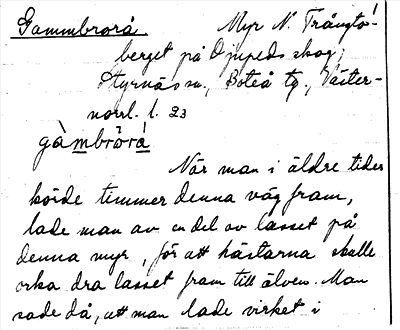 Gammbrorå. Myr N. Trångtö-
berget på Djupeds skog,
Styrnäs sn., Boteå tg., Väster-
norrl. l. 23
gàmbrörá
När man i äldre tider
körde timmer denna väg fram,
lade man av en del av lasset på
denna myr, för att hästarna skulle
orka dra lasset fram till älven. Man
sade då, att man lade virket i